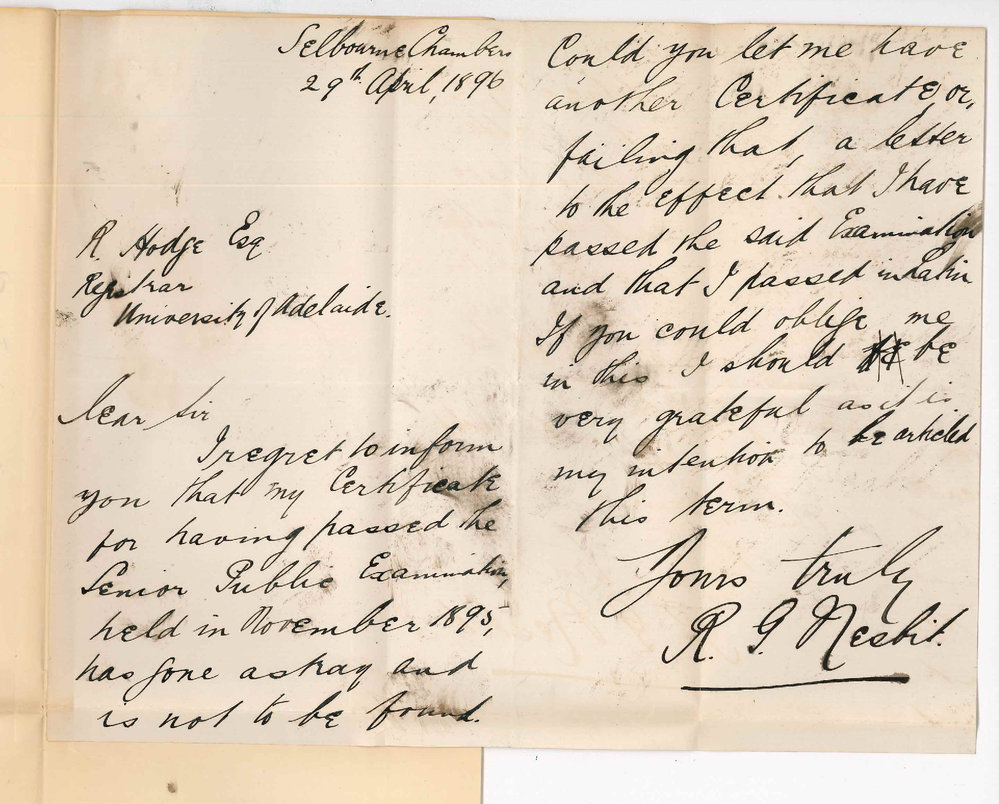 Selbourne Chambers
29th April, 1896
R Hodge Esq
Registrar
University of Adelaide.
Dear Sir
I regret to inform
you that my Certificate
for having passed the
Senior Public Examination,
held in November 1895,
has gone astray and
is not to be found.
Could you let me have
another Certificate, or,
failing that, a letter
to the effect that I have
passed the said Examination
and that I passed in Latin
If you could oblige me
in this I should be
very grateful as it is
my intention to be articled
this term.
Yours truly
R. G. Nesbit.